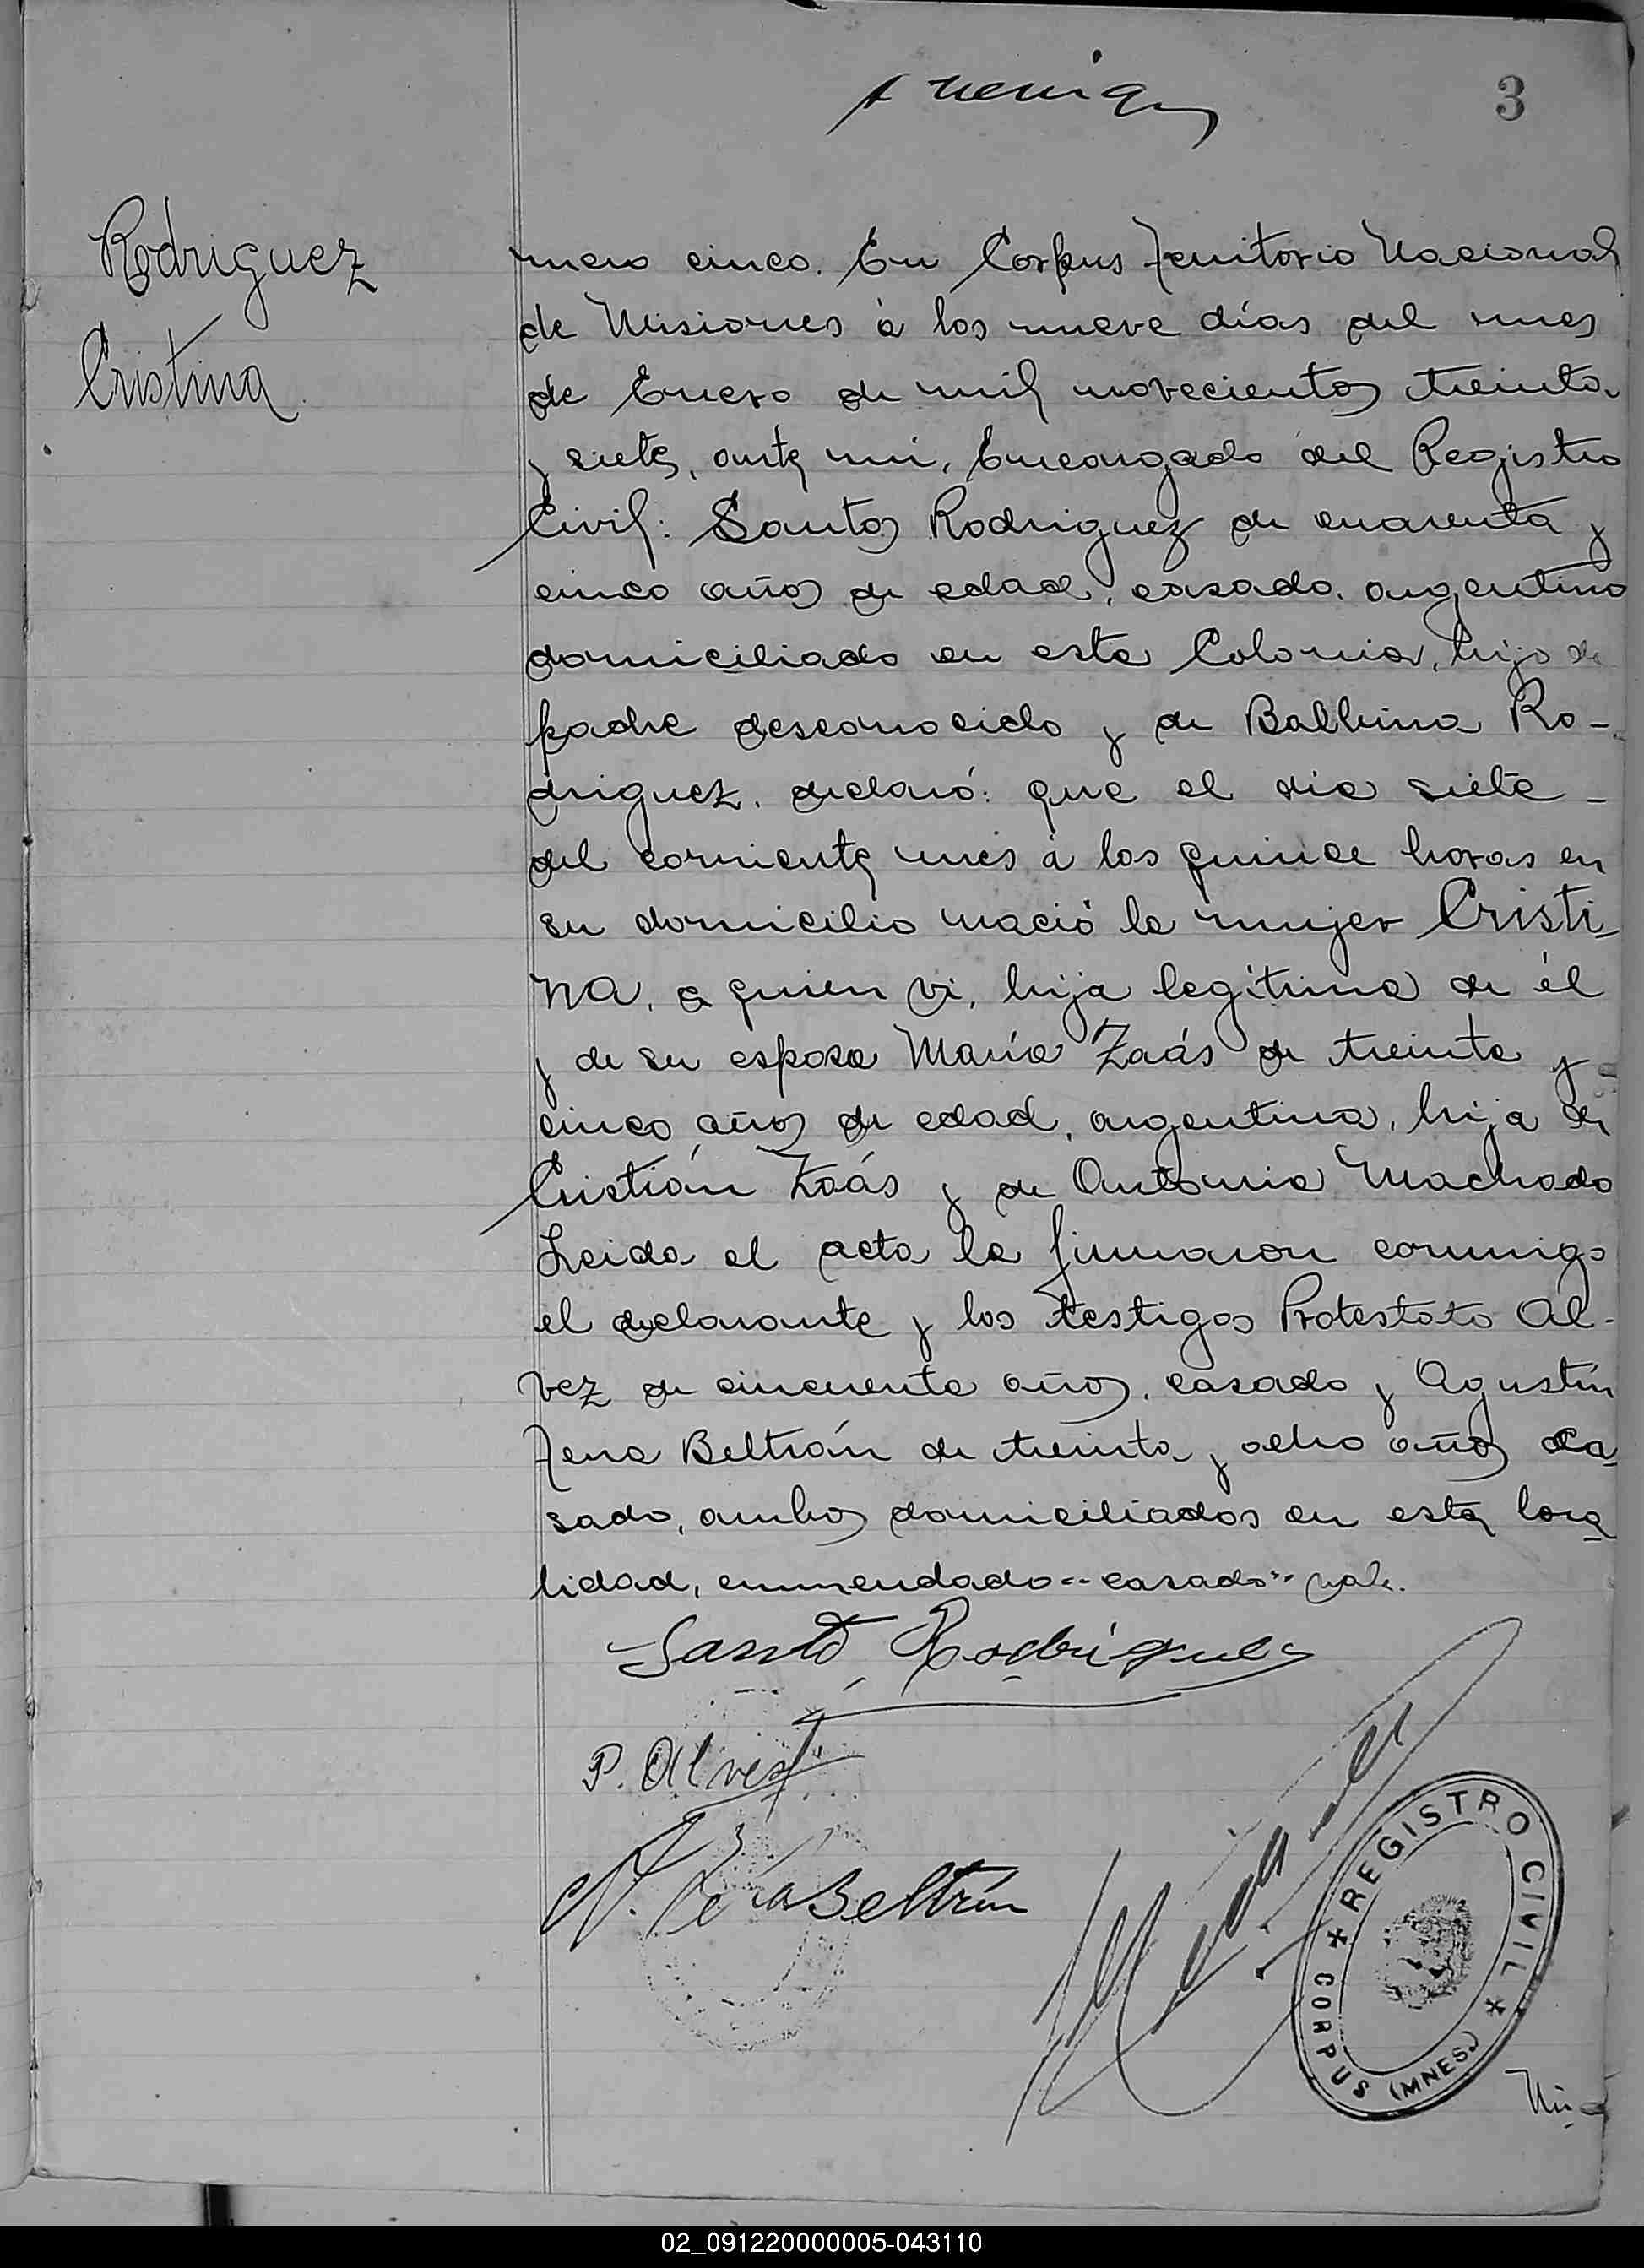 3
Rodriguez
Cristina
mero cinco. En Corpus Territorio Nacional
de Misiones á los nueve días del mes
de Enero de mil novecientos treinta
y siete, ante mi, Encargado del Registro
Civil: Santos Rodriguez de cuarenta y
cinco años de edad, casado, argentino
domiciliado en esta Colonia, hijo de
padre desconocido y de Balbina Ro-
driguez, declaró: que el dia siete -
del corriente mes á las quince horas en
su domicilio nació la mujer Cristi-
na, a quien vi, hija legítima de él
y de su esposa María Zaás de treinta y
cinco años de edad, argentina, hija de
Cristián Zaás y de Antonia Machado
Leida el acta la firmaron conmigo
el declarante y los testigos Protestato Al-
vez de cincuenta años, casado y Agustín
Jena Beltrán de treinta y ocho años ca
sado, ambos domiciliados en esta loca
lidad, enmendado "casado" vale.
Santo Rodriguez
P. Alvez
Beltrán
REGISTRO CIVIL
CORPUS (MNES.)
Nú-
02_091220000005-043110